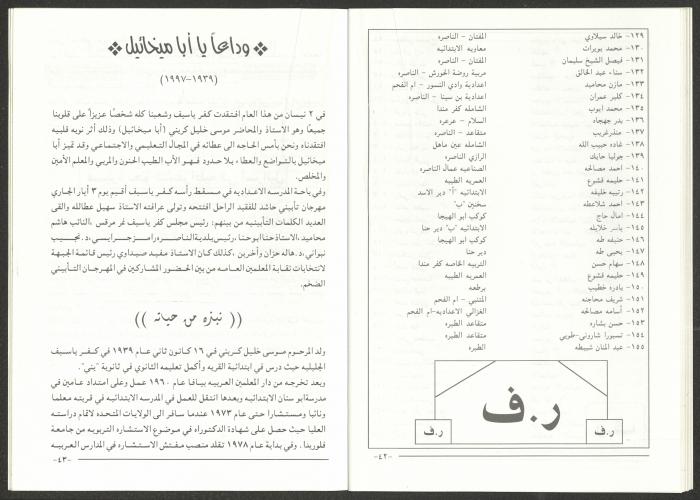 ١٢٩- خالد سبلاوي المفتان - الناصره
١٣٠- محمد بويرات معاويه الابتدائيه
١٣١- فيصل الشيخ سليمان المفتان - الناصره
١٣٢- سناء عبد الخالق مربية روضة الخورش - الناصره
١٣٣- مازن محاميد اعدادية وادي النسور - ام الفحم
١٣٤- كلير عمران اعدادية بن سينا - الناصره
١٣٥- محمد ايوب الشامله كفر مندا
١٣٦- بدر جهجاه السلام - عرعره
١٣٧- منذر غريب متقاعد - الناصره
١٣٨- غاده حبيب الله الشامله عين ماهل
١٣٩- جوليا حايك الرازي الناصره
١٤٠- احمد مصالحه الصناعيه عمال الناصره
١٤١- حليمه قشوع العمريه الطيبه
١٤٢- رتيبه خليفه الابتدائيه "أ" دير الاسد
١٤٣- احمد شلاعطه سخنين "ب"
١٤٤- امال حاج كوكب ابو الهيجا
١٤٥- ياسر خلايله الابتدائيه "ب" دير حنا
١٤٦- حنيفه طه كوكب ابو الهيجا
١٤٧- يحيى طه دير حنا
١٤٨- سهام حسن التربيه الخاصه كفر مندا
١٤٩- حليمه قشوع العمريه الطيبه
١٥٠- بادره خطيب برطعه
١٥١- شريف محاجنه المتنبي - ام الفحم
١٥٢- أسامه مصالحه الغزالي الاعداديه-ام الفحم
١٥٣- حسن بشاره متقاعد الطيره
١٥٤- تسبورا شاروني-طوبي متقاعد الطيره
١٥٥- عبد المنان شبيطه الطيره
ر.ف
ر.ف ر.ف
-٤٢-
وداعاً يا أبا ميخائيل
(١٩٣٩-١٩٩٧)
في ٢ نيسان من هذا العام افتقدت كفر ياسيف وشعبنا كله شخصًا عزيزاً على قلوبنا
جميعًا وهو الاستاذ والمحاضر موسى خليل كريني (أبا ميخائيل) وذلك أثر نوبه قلبيه
افتقدناه ونحن بأمس الحاجه الى عطائه في المجال التعليمي والاجتماعي وقد تميز أبا
ميخائيل بالتواضع والعطاء بلا حدود فهو الأب الطيب الحنون والمربي والمعلم الأمين
والمخلص.
وفي باحة المدرسه الاعداديه في مسقط رأسه كفر ياسيف أقيم يوم ٣ أيار الجاري
مهرجان تأبيني حاشد للفقيد الراحل افتتحه وتولى عرافته الاستاذ سهيل عطاالله والقى
العديد الكلمات التأبينيه من بينهم: رئيس مجلس كفر ياسيف غر مرقس ،النائب هاشم
محاميد ،الاستاذ حنا ابو حنا ،رئيس بلدية الناصره رامز جرايسي ،د. نجيب
نبواني ،د.هاله حزان وآخرين ،كذلك كان الاستاذ مفيد صيداوي رئيس قائمة الجبهة
لانتخابات نقابة المعلمين العامه من بين الحضور المشاركين في المهرجان التأبيني
الضخم.
(( نبذه من حياته ))
ولد المرحوم موسى خليل كريني في ١٦ كانون ثاني عام ١٩٣٩ في كفر ياسيف
الجليليه حيث درس في ابتدائية القريه وأكمل تعليمه الثانوي في ثانوية "يني".
وبعد تخرجه من دار المعلمين العربيه بيافا عام ١٩٦٠ عمل وعلى امتداد عامين في
مدرسة ابو سنان الابتدائيه وبعدها انتقل للعمل في المدرسه الابتدائيه في قريته معلما
ونائبا ومستشارا حتى عام ١٩٧٣ عندما سافر الى الولايات المتحده لاتمام دراسته
العليا حيث حصل على شهادة الدكتوراه في موضوع الاستشاره التربويه من جامعة
فلوريدا . وفي بداية عام ١٩٧٨ تقلد منصب مفتش الاستشاره في المدارس العربيه
-٤٣-